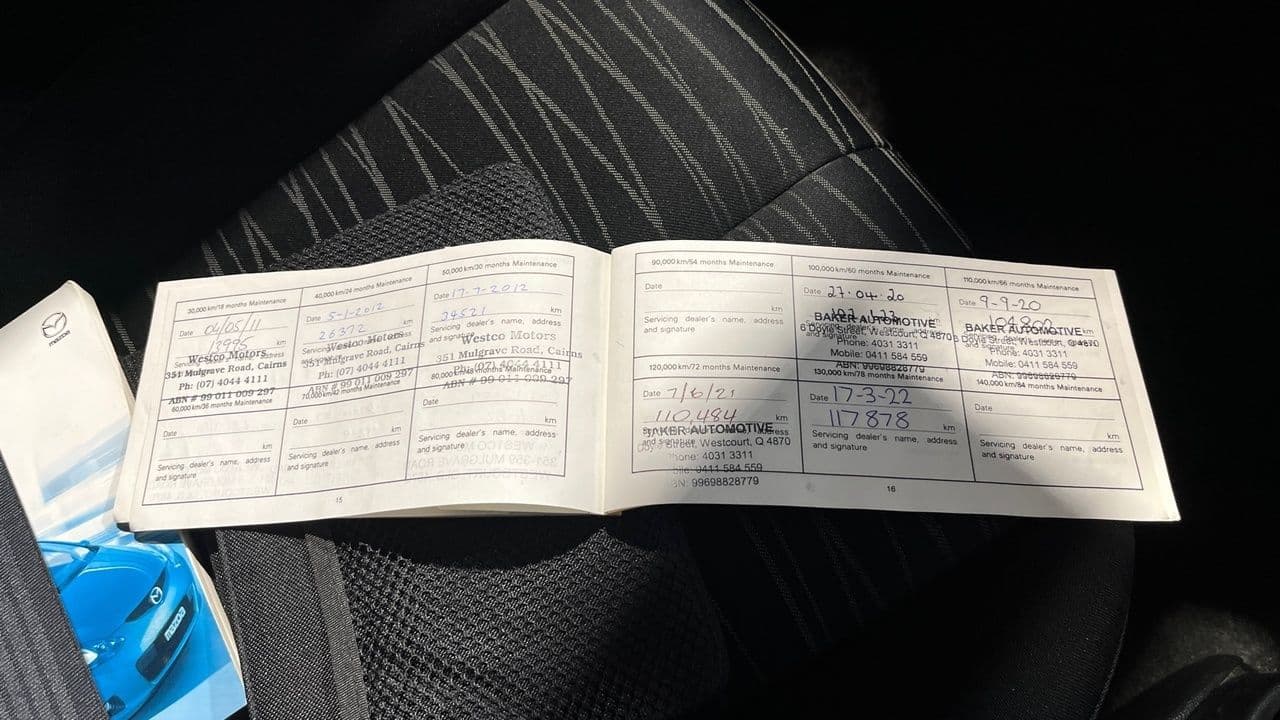 mazda
30,000 km/18 months Maintenance
Date 04/05/11
km
Westco Motors
351 Mulgrave Road, Cairns
Ph: (07) 4044 4111
ABN # 99 011 009 297
40,000 km/24 months Maintenance
Date 5-1-2012
26372 km
Westco Motors
351 Mulgrave Road, Cairns
Ph: (07) 4044 4111
ABN # 99 011 009 297
50,000 km/30 months Maintenance
Date 17-7-2012
34521 km
Servicing dealer's name, address
Westco Motors
351 Mulgrave Road, Cairns
Ph: (07) 4044 4111
ABN # 99 011 009 297
60,000 km/36 months Maintenance
Date
km
Servicing dealer's name, address
and signature
70,000 km/42 months Maintenance
Date
km
Servicing dealer's name, address
and signature
80,000 km/48 months Maintenance
Date
km
Servicing dealer's name, address
and signature
15
90,000 km/54 months Maintenance
Date
km
Servicing dealer's name, address
and signature
100,000 km/60 months Maintenance
Date 27.04.20
BAKER AUTOMOTIVE
6 Doyle Street, Westcourt, Q 4870
Phone: 4031 3311
Mobile: 0411 584 559
ABN: 99698828779
110,000 km/66 months Maintenance
Date 9-9-20
km
BAKER AUTOMOTIVE
Westcourt, Q 4870
Phone: 4031 3311
Mobile: 0411 584 559
ABN: 99698828779
120,000 km/72 months Maintenance
Date 7/6/21
110,484 km
BAKER AUTOMOTIVE
and signature
Westcourt, Q 4870
Phone: 4031 3311
0411 584 559
99698828779
130,000 km/78 months Maintenance
Date 17-3-22
117878 km
Servicing dealer's name, address
and signature
140,000 km/84 months Maintenance
Date
km
Servicing dealer's name, address
and signature
16